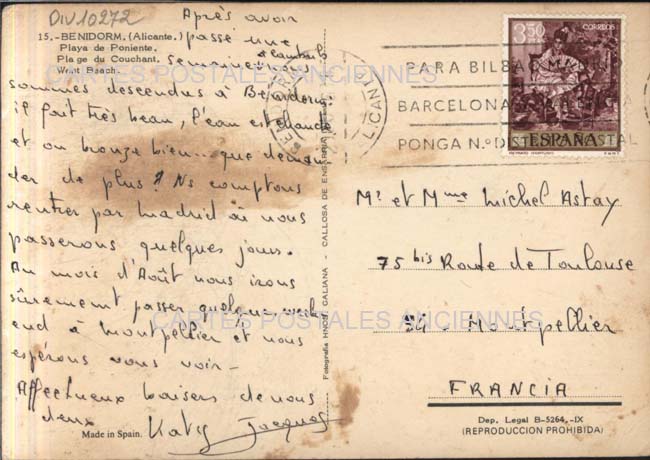 DIV10272
15.-BENIDORM. (Alicante.)
Playa de Poniente.
Plage du Couchant.
West Beach.
Après avoir
passé une
semaine
nous
sommes descendus à Benidorm.
il fait très beau, l'eau est chaude
et on bronze bien... que deman
der de plus ? Ns comptons
rentrer par Madrid où nous
passerons quelques jours.
Au mois d'Août nous irons
sûrement passer quelque week
end à Montpellier et nous
espérons vous voir -
Affectueux baisers de nous
deux
Katy Jacques
Made in Spain.
Fotografía HNOS. GALIANA - CALLOSA DE ENSARRIÁ
ALICANTE
PARA BILBAO MADRID
BARCELONA
PONGA N.º DISTRITO POSTAL
3,50 CORREOS
ESPAÑA
Mr et Mme Michel Astay
75 bis Route de Toulouse
34 - Montpellier
FRANCIA
Dep. Legal B-5264.-IX
(REPRODUCCION PROHIBIDA)
CARTES POSTALES ANCIENNES
CARTES POSTALES ANCIENNES